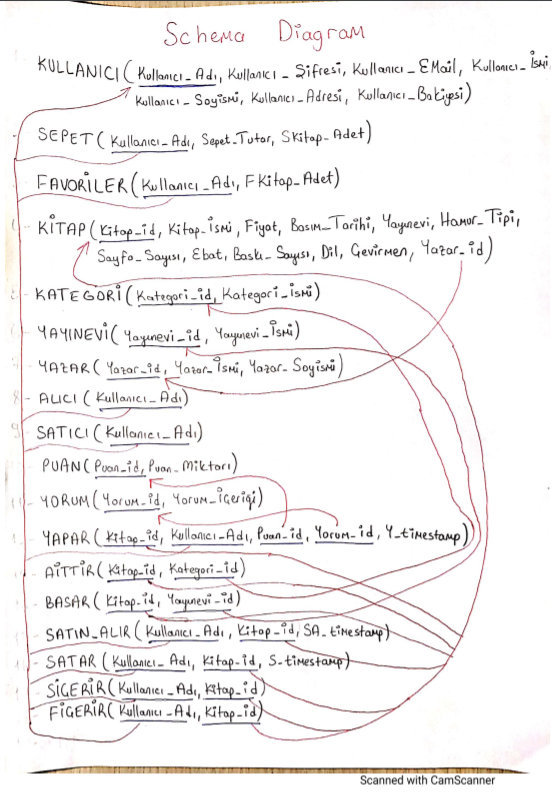 Schema Diagram
KULLANICI (Kullanıcı_Adı, Kullanıcı_Şifresi, Kullanıcı_EMail, Kullanıcı_İsmi,
Kullanıcı_Soyismi, Kullanıcı_Adresi, Kullanıcı_Bakiyesi)
SEPET (Kullanıcı_Adı, Sepet_Tutar, SKitap_Adet)
FAVORİLER (Kullanıcı_Adı, FKitap_Adet)
KİTAP (Kitap_id, Kitap_İsmi, Fiyat, Basım_Tarihi, Yayınevi, Hamur_Tipi,
Sayfa_Sayısı, Ebat, Baskı_Sayısı, Dil, Çevirmen, Yazar_id)
KATEGORİ (Kategori_id, Kategori_İsmi)
YAYINEVİ (Yayınevi_id, Yayınevi_İsmi)
YAZAR (Yazar_id, Yazar_İsmi, Yazar_Soyismi)
ALICI (Kullanıcı_Adı)
SATICI (Kullanıcı_Adı)
PUAN (Puan_id, Puan_Miktarı)
YORUM (Yorum_id, Yorum_İçeriği)
YAPAR (Kitap_id, Kullanıcı_Adı, Puan_id, Yorum_id, Y_timestamp)
AİTTİR (Kitap_id, Kategori_id)
BASAR (Kitap_id, Yayınevi_id)
SATIN_ALIR (Kullanıcı_Adı, Kitap_id, SA_timestamp)
SATAR (Kullanıcı_Adı, Kitap_id, S_timestamp)
SİÇERİR (Kullanıcı_Adı, Kitap_id)
FİÇERİR (Kullanıcı_Adı, Kitap_id)
Scanned with CamScanner